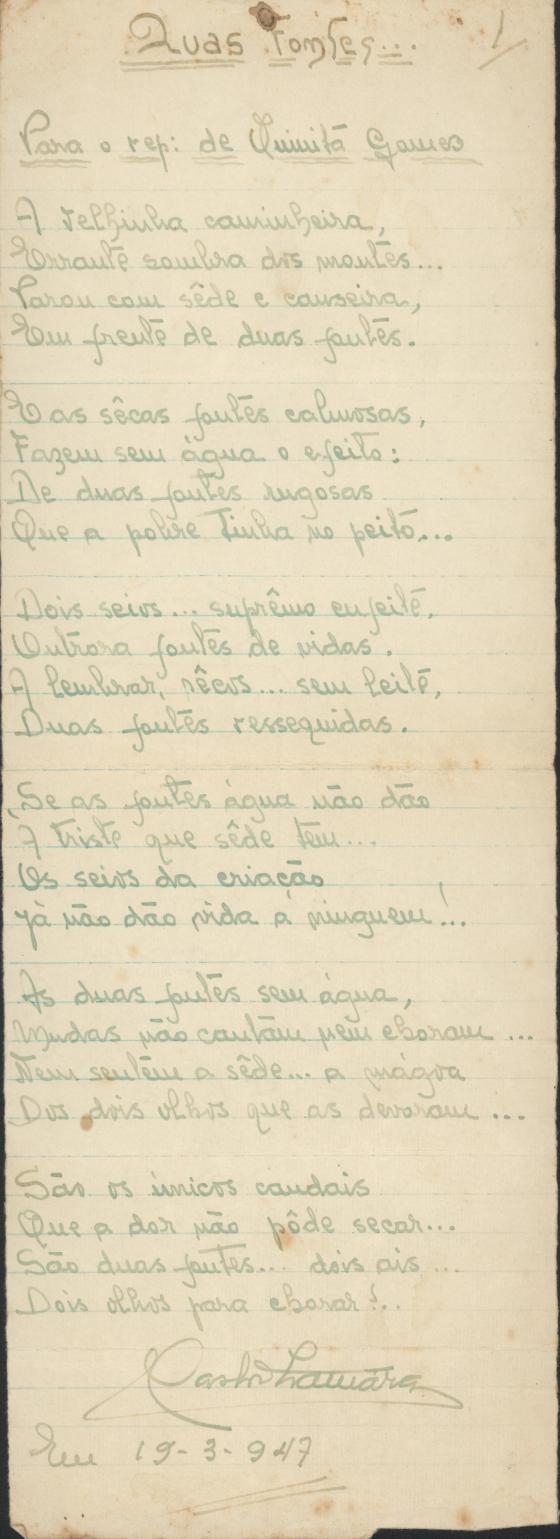 Duas Fontes... 1
Para o rep: de Quinitá Gomes
A velhinha caminheira,
Errante sombra dos montes...
Parou com sêde e canseira,
Em frente de duas fontes.
E as sêcas fontes calmosas,
Fazem sem água o efeito:
De duas fontes rugosas
Que a pobre tinha no peito...
Dois seios... suprêmo enfeite,
Outrora fontes de vidas.
A lembrar, sêcos... sem leite,
Duas fontes ressequidas.
Se as fontes água não dão
Á triste que sêde tem...
Os seios da criação
Já não dão vida á ninguem!...
As duas fontes sem água,
Mudas não cantam nem choram...
Nem sentem a sêde... a mágoa
Dos dois olhos que as devoram...
São os únicos caudais
Que a dor não pôde secar...
São duas fontes... dois ais...
Dois olhos para chorar!..
Em 19-3-947